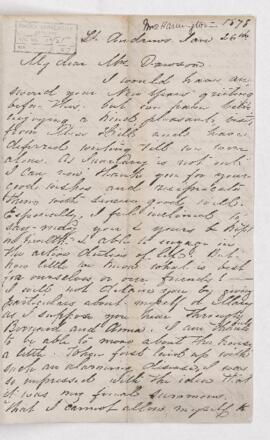 Mrs Harrington - 1878
St. Andrews Jan 26th
My dear Mr. Dawson
I would have an
swered your New Years greeting
before this, but we have been
enjoying a kind pleasant visit
from Miss Hill and have
deferred writing till we were
alone. As January is not out
I can now thank you for your
good wishes and reciprocate
them with sincere good will.
Especially, I feel inclined to
day you & yours to
health & able to engage in
the active duties of life. But
how little we know what is best
for ourselves or our friends!
I will not detain you by giving
particulars about myself &
as I suppose you hear through
and Anna. I am
to be able to move about the house
a little. When first laid up with
such an alarming disease, I was
so impressed with the idea that
it was my final summons,
that I cannot allow myself to